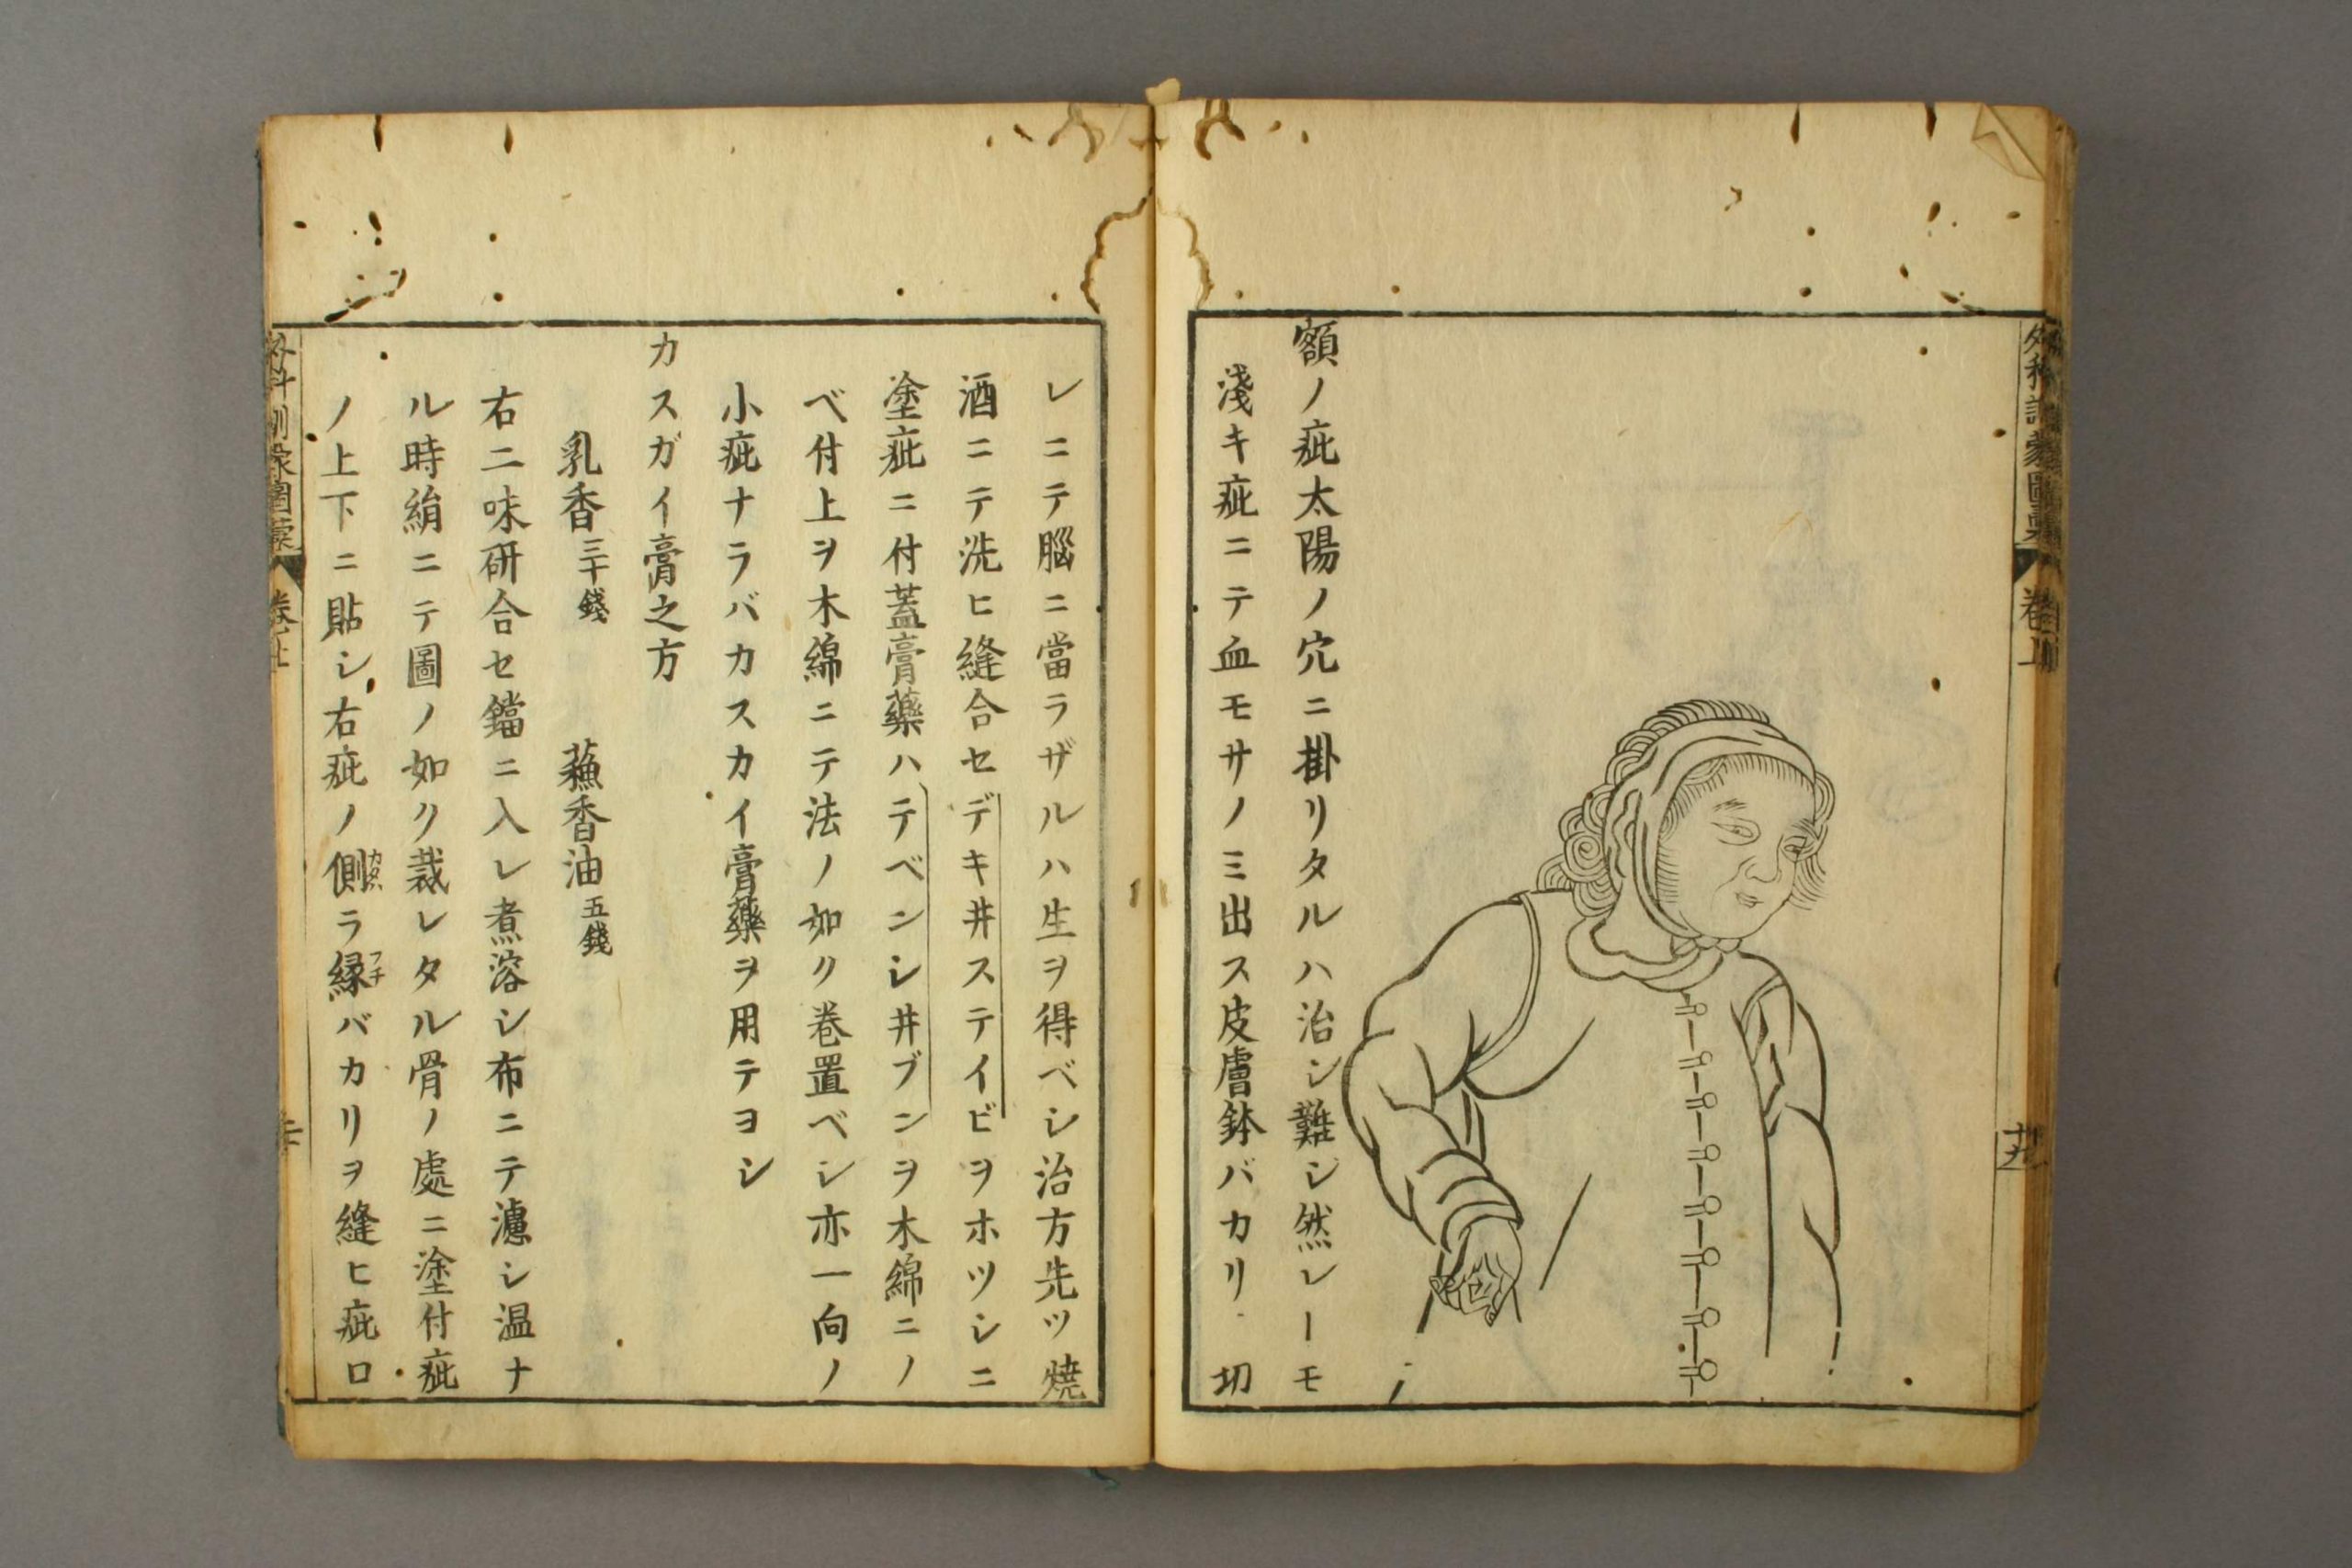 外科訓蒙圖彙
卷上
十九
額ノ疵太陽ノ穴ニ掛リタルハ治シ難シ然レーモ
淺キ疵ニテ血モサノミ出ス皮膚鉢バカリ切
レニテ腦ニ當ラザルハ生ヲ得ベシ治方先ツ燒
酒ニテ洗ヒ縫合セデキ井ステイビヲホツシニ
塗疵ニ付蓋膏藥ハテベンシ井ブンヲ木綿ニノ
ベ付上ヲ木綿ニテ法ノ如ク卷置ベシ亦一向ノ
小疵ナラバカスカイ膏藥ヲ用テヨシ
カスガイ膏之方
乳香三十錢 蘓香油五錢
右二味研合セ鐺ニ入レ煮溶シ布ニテ濾シ温ナ
ル時絹ニテ圖ノ如ク裁レタル骨ノ處ニ塗付疵
ノ上下ニ貼シ右疵ノ側ラ縁バカリヲ縫ヒ疵口
フチ
外科訓蒙圖彙
卷上